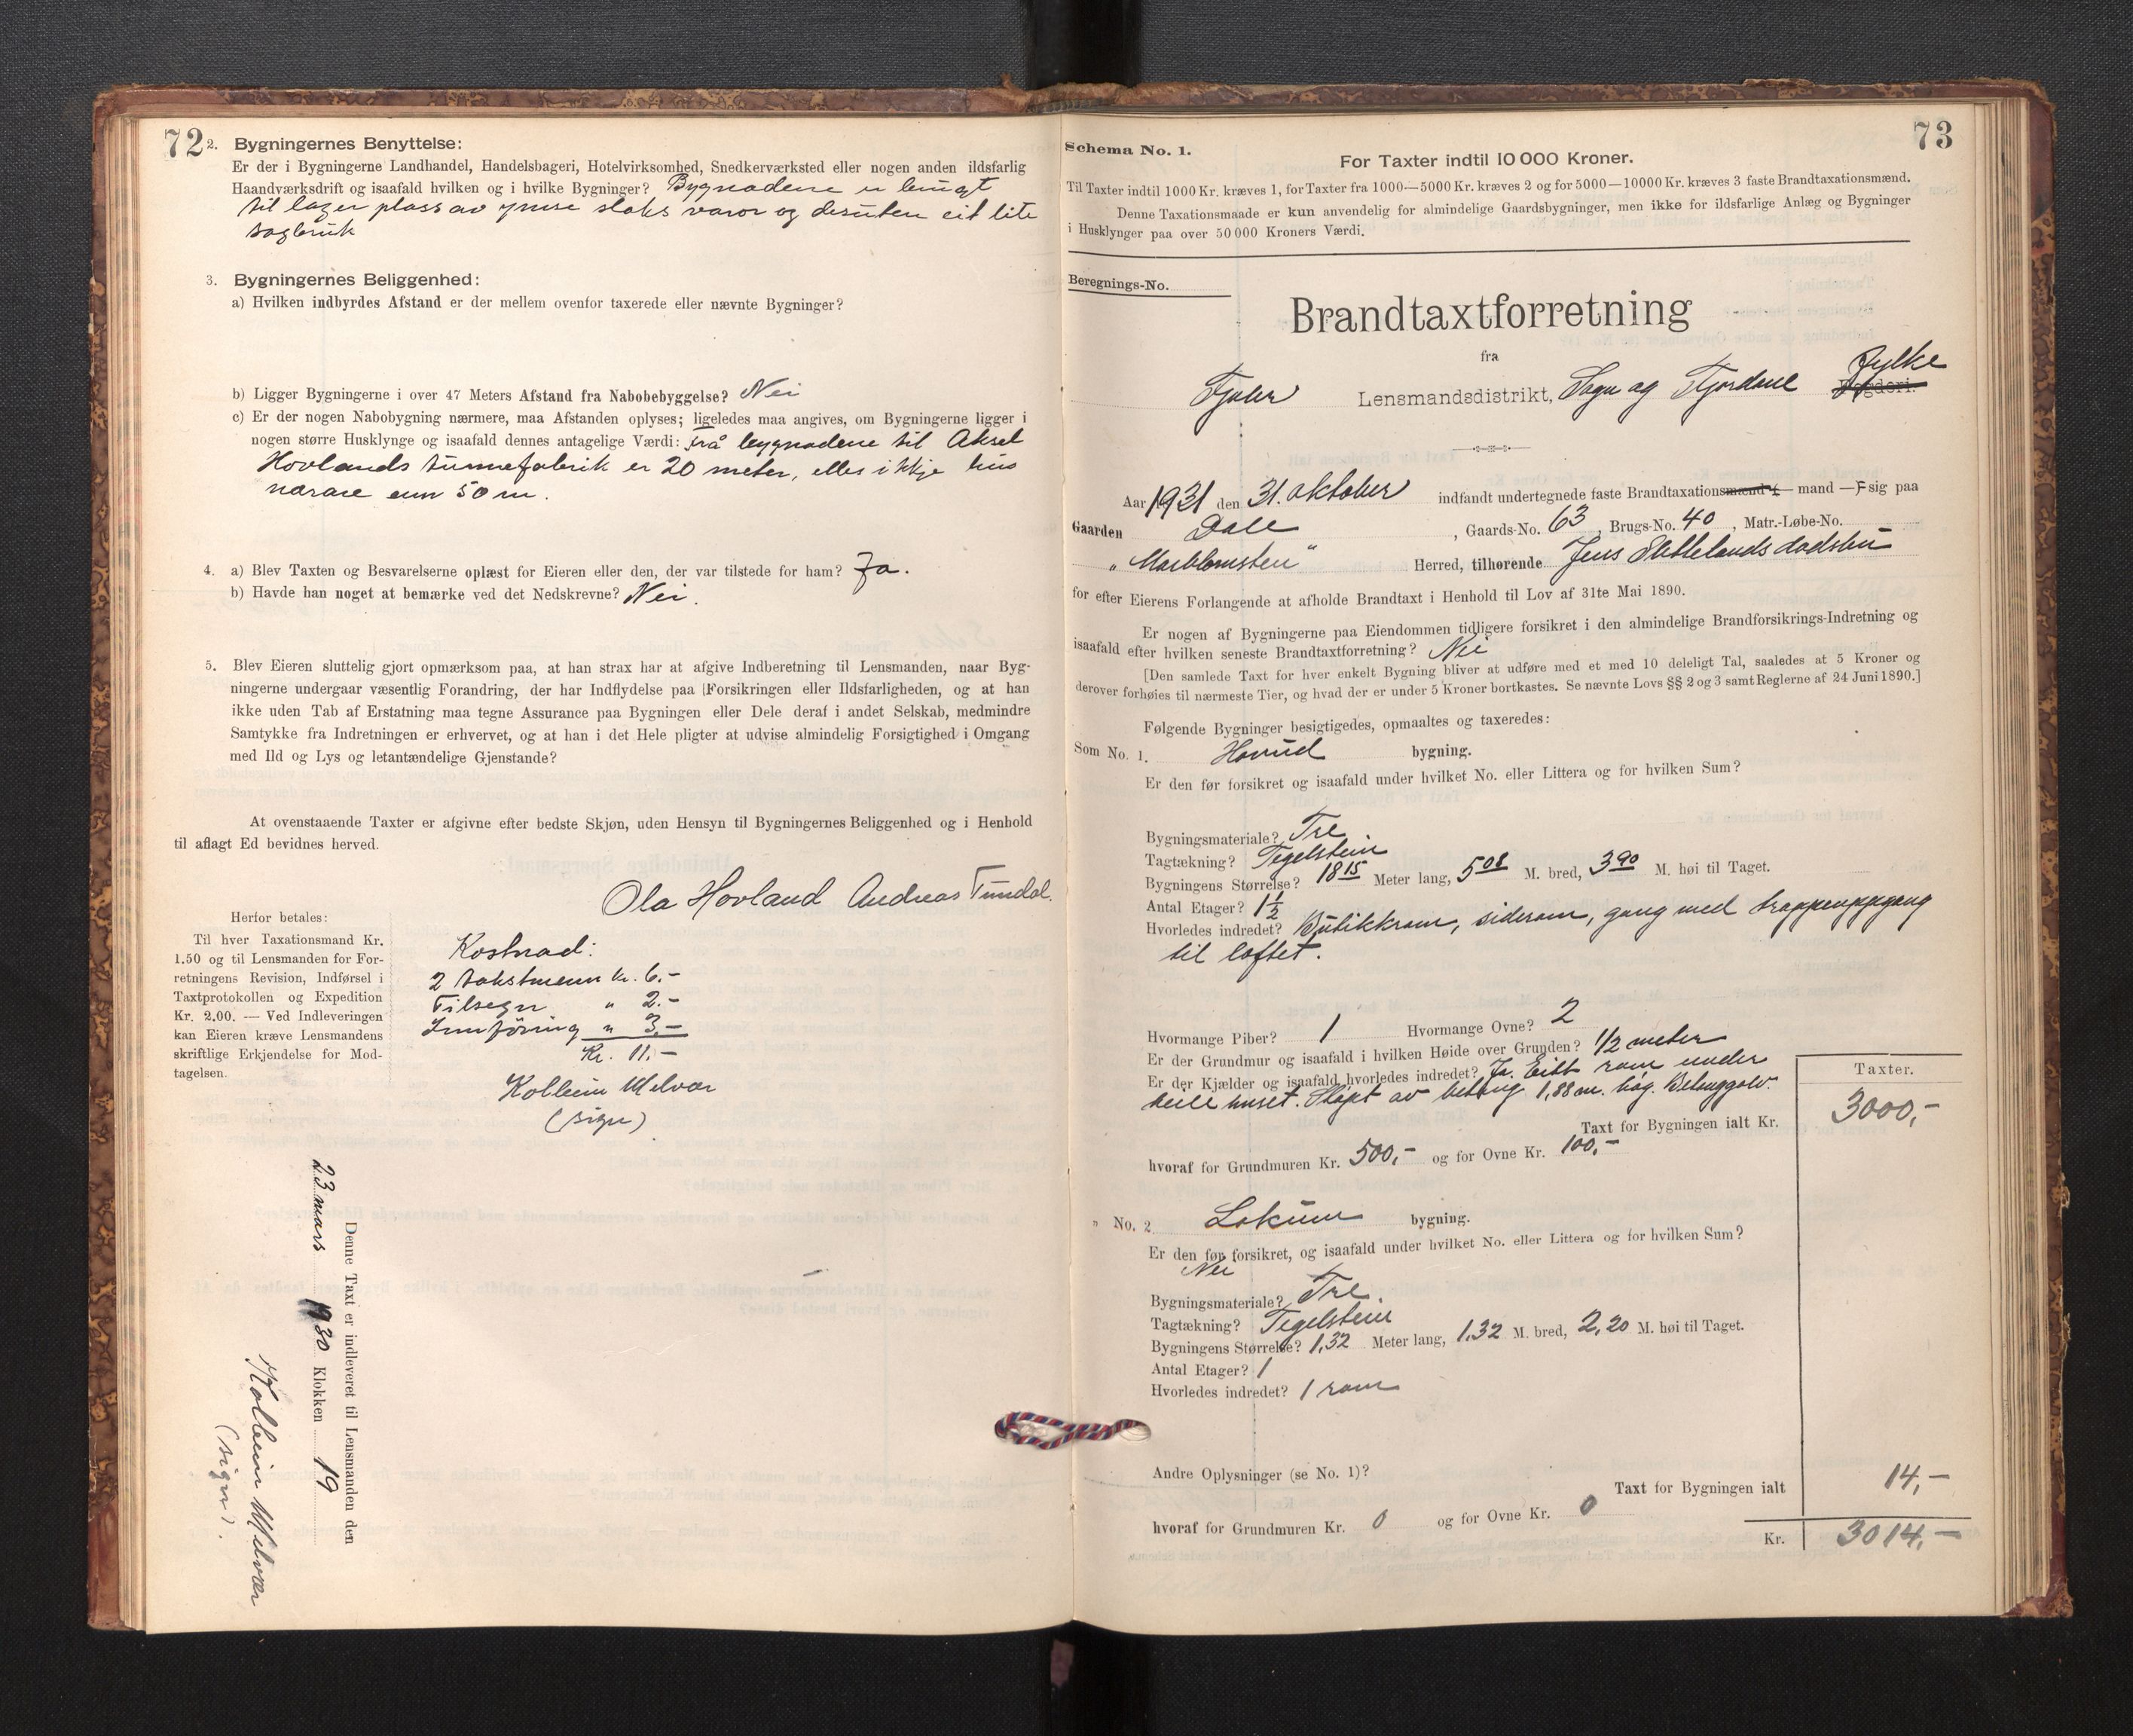 72
2. Bygningernes Benyttelse:
Er der i Bygningerne Landhandel, Handelsbageri, Hotelvirksomhed, Snedkerværksted eller nogen anden ildsfarlig
Haandværksdrift og isaafald hvilken og i hvilke Bygninger? Bygnadene er brugt
til lager plass av ymse slaks varor og desuten eit lite
sagbruk
3. Bygningernes Beliggenhed:
a) Hvilken indbyrdes Afstand er der mellem ovenfor taxerede eller nævnte Bygninger?
b) Ligger Bygningerne i over 47 Meters Afstand fra Nabobebyggelse? Nei
c) Er der nogen Nabobygning nærmere, maa Afstanden oplyses; ligeledes maa angives, om Bygningerne ligger i
nogen større Husklynge og isaafald dennes antagelige Værdi: frå bygnadene til Aksel
Hovlands tunnefabrik er 20 meter, elles ikkje hus
nærare enn 50 m.
4. a) Blev Taxten og Besvarelserne oplæst for Eieren eller den, der var tilstede for ham? Ja.
b) Havde han noget at bemærke ved det Nedskrevne? Nei.
5. Blev Eieren sluttelig gjort opmærksom paa, at han strax har at afgive Indberetning til Lensmanden, naar Byg-
ningerne undergaar væsentlig Forandring, der har Indflydelse paa Forsikringen eller Ildsfarligheden, og at han
ikke uden Tab af Erstatning maa tegne Assurance paa Bygningen eller Dele deraf i andet Selskab, medmindre
Samtykke fra Indretningen er erhvervet, og at han i det Hele pligter at udvise almindelig Forsigtighed i Omgang
med Ild og Lys og letantændelige Gjenstande?
At ovenstaaende Taxter er afgivne efter bedste Skjøn, uden Hensyn til Bygningernes Beliggenhed og i Henhold
til aflagt Ed bevidnes herved.
Ola Hovland Andreas Tundal.
Herfor betales:
Til hver Taxationsmand Kr.
1.50 og til Lensmanden for For-
retningens Revision, Indførsel i
Taxtprotokollen og Expedition
Kr. 2.00. — Ved Indleveringen
kan Eieren kræve Lensmandens
skriftlige Erkjendelse for Mod-
tagelsen.
Kostnad:
2 takstmenn kr. 6.-
Tilsegn " 2.-
Innföring " 3.-
Kr. 11.-
Kolbein Melvær
(sign)
Denne Taxt er indleveret til Lensmanden den
23 mars 1930 Klokken 19
Kolbein Melvær
(sign).
73
Schema No. 1.
For Taxter indtil 10 000 Kroner.
Til Taxter indtil 1000 Kr. kræves 1, for Taxter fra 1000—5000 Kr. kræves 2 og for 5000—10000 Kr. kræves 3 faste Brandtaxationsmænd.
Denne Taxationsmaade er kun anvendelig for almindelige Gaardsbygninger, men ikke for ildsfarlige Anlæg og Bygninger
i Husklynger paa over 50 000 Kroners Værdi.
Beregnings-No.
Brandtaxtforretning
fra
Fjaler Lensmandsdistrikt, Sogn og Fjordane Fylke Fogderi.
Aar 1931 den 31. oktober indfandt undertegnede faste Brandtaxationsmænd - mand - sig paa
Gaarden Dale, Gaards-No. 63, Brugs-No. 40, Matr.-Løbe-No.
"Maiblomsten" Herred, tilhørende Jens dødsbu
for efter Eierens Forlangende at afholde Brandtaxt i Henhold til Lov af 31te Mai 1890.
Er nogen af Bygningerne paa Eiendommen tidligere forsikret i den almindelige Brandforsikrings-Indretning og
isaafald efter hvilken seneste Brandtaxtforretning? Nei
[Den samlede Taxt for hver enkelt Bygning bliver at udføre med et med 10 deleligt Tal, saaledes at 5 Kroner og
derover forhøies til nærmeste Tier, og hvad der er under 5 Kroner bortkastes. Se nævnte Lovs §§ 2 og 3 samt Reglerne af 24 Juni 1890.]
Følgende Bygninger besigtigedes, opmaaltes og taxeredes:
Som No. 1. Hovud bygning.
Er den før forsikret og isaafald under hvilket No. eller Littera og for hvilken Sum?
Bygningsmateriale? Tre
Tagtækning? Tegelstein
Bygningens Størrelse? 18 15 Meter lang, 5 08 M. bred, 3 90 M. høi til Taget.
Antal Etager? 1 1/2
Hvorledes indredet? Butikkrom, siderom, gang med trappeuppgang
til loftet.
Hvormange Piber? 1 Hvormange Ovne? 2
Er der Grundmur og isaafald i hvilken Høide over Grunden? 1/2 meter
Er der Kjælder og isaafald hvorledes indredet? Ja. Eitt rom under
heile huset. Støpt av betong 1,88 m. høg. Betonggolv.
Taxter.
Taxt for Bygningen ialt Kr. 3000,-
hvoraf for Grundmuren Kr. 500,- og for Ovne Kr. 100,-
" No. 2 Lokum bygning.
Er den før forsikret, og isaafald under hvilket No. eller Littera og for hvilken Sum?
Nei
Bygningsmateriale? Tre
Tagtækning? Tegelstein
Bygningens Størrelse? 1,32 Meter lang, 1,32 M. bred, 2,20 M. høi til Taget.
Antal Etager? 1
Hvorledes indredet? 1 rom
Andre Oplysninger (se No. 1)?
Taxt for Bygningen ialt 14,-
hvoraf for Grundmuren Kr. 0 og for Ovne Kr. 0
Kr. 3014,-